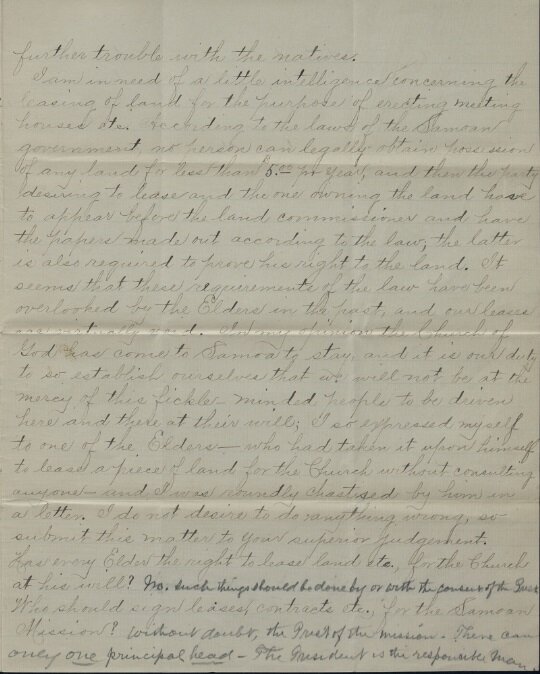 further trouble with the natives.
I am in need of a little intelligence concerning the
leasing of land for the purpose of erecting meeting
houses etc. According to the laws of the Samoan
government, no person can legally obtain possession
of any land for less than $5.00 pr year, and then the party
desiring to lease and the one owning the land have
to appear before the land commissioner and have
the papers made out according to the law, the latter
is also required to prove his right to the land. It
seems that these requirements of the law have been
overlooked by the Elders in the past, and our leases
are virtually void. In my opinion the Church of
God has come to Samoa to stay, and it is our duty
to so establish ourselves that we will not be at the
mercy of this fickle-minded people to be driven
here and there at their will; I so expressed myself
to one of the Elders — who had taken it upon himself
to lease a piece of land for the Church without consulting
anyone — and I was roundly chastised by him in
a letter. I do not desire to do anything wrong, so
submit this matter to your superior judgement.
Has every Elder the right to lease land etc., for the Church
at his will? No. such things should be done by or with the consent of the Prest
Who should sign leases, contracts etc., for the Samoan
Mission? Without doubt, the Prest of the mission. There can
only one principal head — The President is the responsible man.